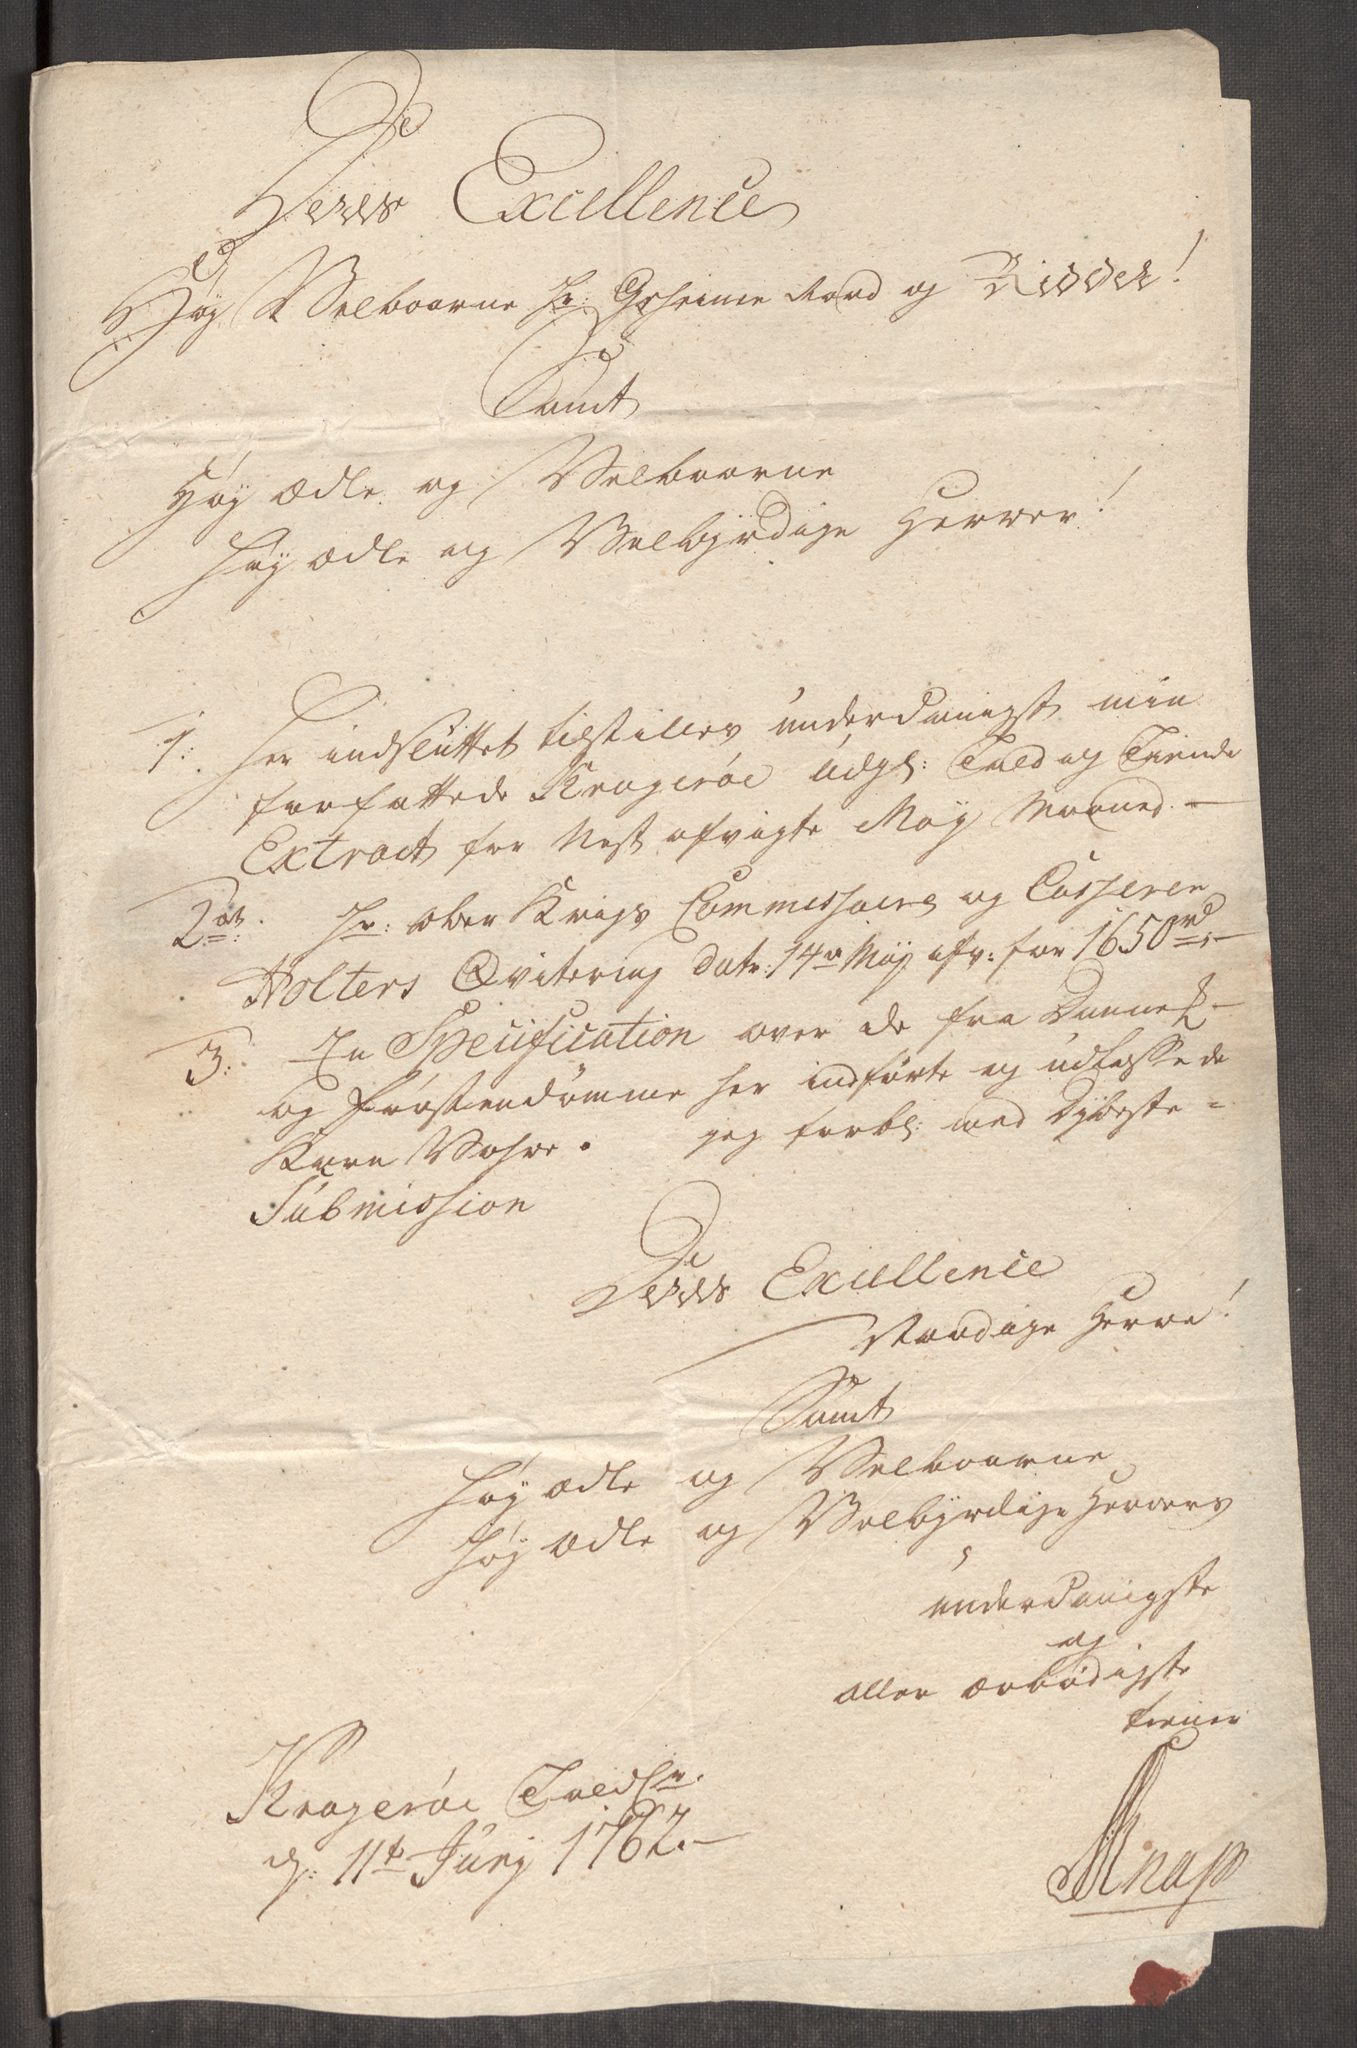 Deres Excellence
Høy Velbaarne Hr: Geheime Raad og Ridder!
Samt
Høy ædle og Velbaarne
Høy ædle og Velbyrdige Herrer!
1: Her indsluttet tilstilles underdanigst min
forfattede Kragerøe Udgl: Told og Tiende
Extract for Nest afvigte Maÿ Maaned. —
2det: Hr: ober Krigs Commissaire og Casserer
Holters Qvitering dat: 14de Maÿ afv: for 1650 rd. —
3: En Specification over de fra Danne —
og fürstendømme her indførte og udlossede
Korn Vahre. jeg forbl: med dybeste
Submission
Deres Excellence
Naadige Herre!
Samt
Høy ædle og Velbaarne
Høy ædle og Velbyrdige Herrers
underdanigste
og
aller ærbødigste
tiener
Kragerøe Told
d: 11te Junÿ 1762. —
Knap